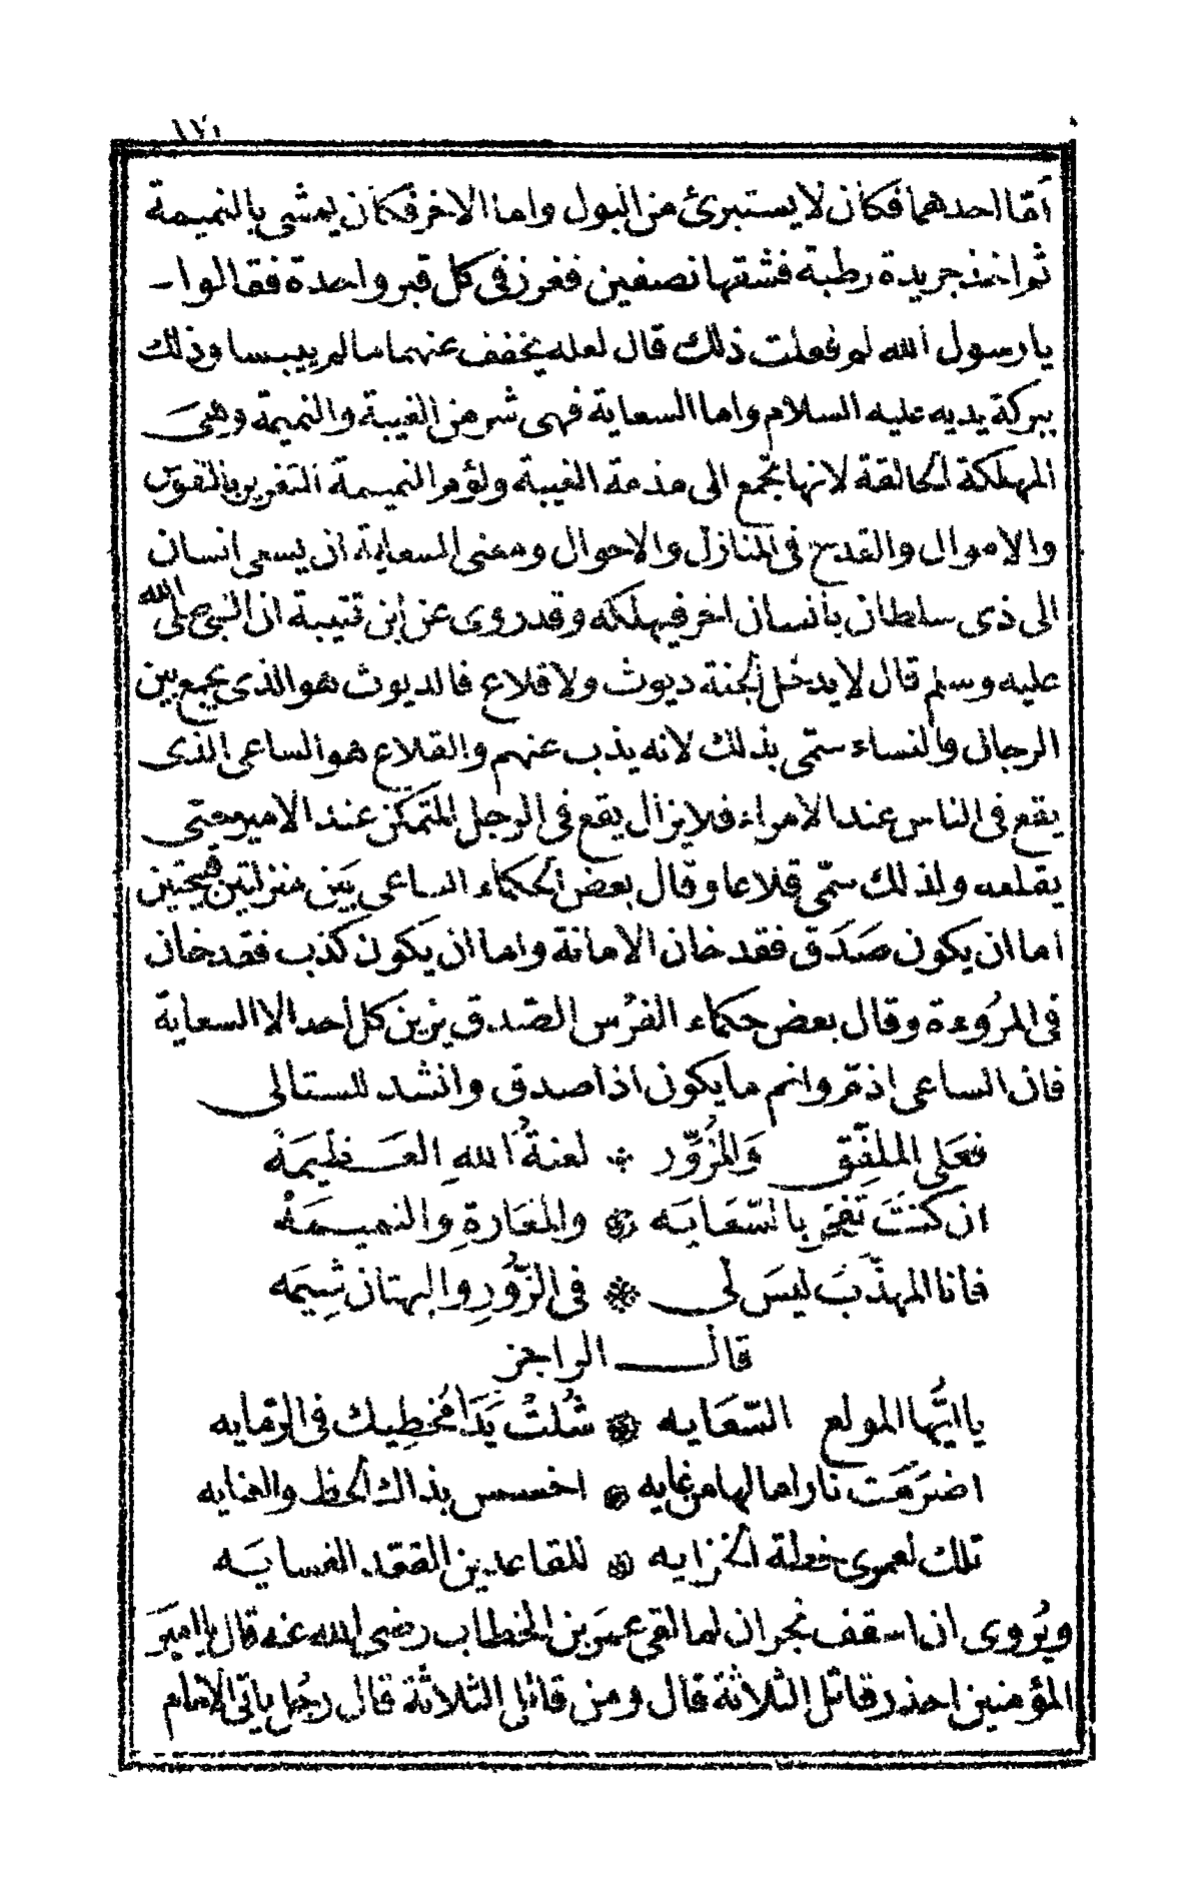 ١٧١
أمّا احدهما فكان لا يستبرئ من البول واما الاخر فكان يمشى بالنميمة
ثم اخذ جريدة رطبة فشقها نصفين فغرز فى كل قبر واحدة فقالوا -
يا رسول الله لم فعلت ذلك قال لعله يخفف عنهما ما لم ييبسا وذلك
ببركة يديه عليه السلام واما السعاية فهى شر من الغيبة والنميمة وهى
المهلكة الحالقة لانها تجمع الى مذمة الغيبة ولؤم النميمة التغرير بالنفوس
والاموال والقدح فى المنازل والاحوال ومعنى السعاية ان يسعى انسان
الى ذى سلطان بانسان اخر فيهلكه وقد روى عن ابن قتيبة ان النبى صلى الله
عليه وسلم قال لا يدخل الجنة ديوث ولا قلاع فالديوث هو الذى يجمع بين
الرجال والنساء سمّى بذلك لانه يذب عنهم والقلاع هو الساعى الذى
يقع فى الناس عند الامراء فلا يزال يقع فى الرجل المتمكن عند الامير حتى
يقلعه ولذلك سمّى قلاعا وقال بعض الحكماء الساعى بَين منزلتين قبيحتين
اما ان يكون صَدَق فقد خان الامانة واما ان يكون كذب فقد خان
فى المرُوءة وقال بعض حكماء الفرُس الصّدق يزين كل أحد الا السعاية
فان الساعى اذمّ وانم ما يكون اذا صدق وانشد للستالى
فعَلى الملفِّقِ وَالمُزوِّر ❊ لعنةُ اللهِ العَظيمَهْ
ان كنتَ تفخر بالسّعَايَه ❊ والمغَارةِ والنميمَهْ
فأنا المهذّبَ ليسَ لى ❊ فى الزُّورِ والبهتان شِيمَه
قال الراجز
يا ايُّها المولع السّعَايه ❊ شُلتْ يَدَا مُخطِيك فى الرّمايه
اضرَمَت نارا مالها من غايه ❊ اخسس بذاك الحظ والعنايه
تلك لعمرى خطة الخزايه ❊ للقاعدين القعّد الفسايَه
ويُروى ان اسقف نجران لما لقى عمَر بن الخطاب رضى الله عنه قال يا اميرَ
المؤمنين احذر قاتل الثلاثة قال ومن قاتل الثلاثة قال رجُل يأتى الامام